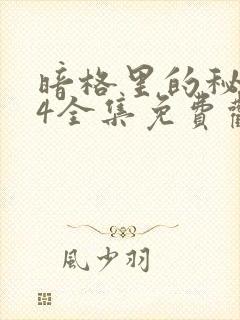 暗格里的秘
4全集免費
風少羽